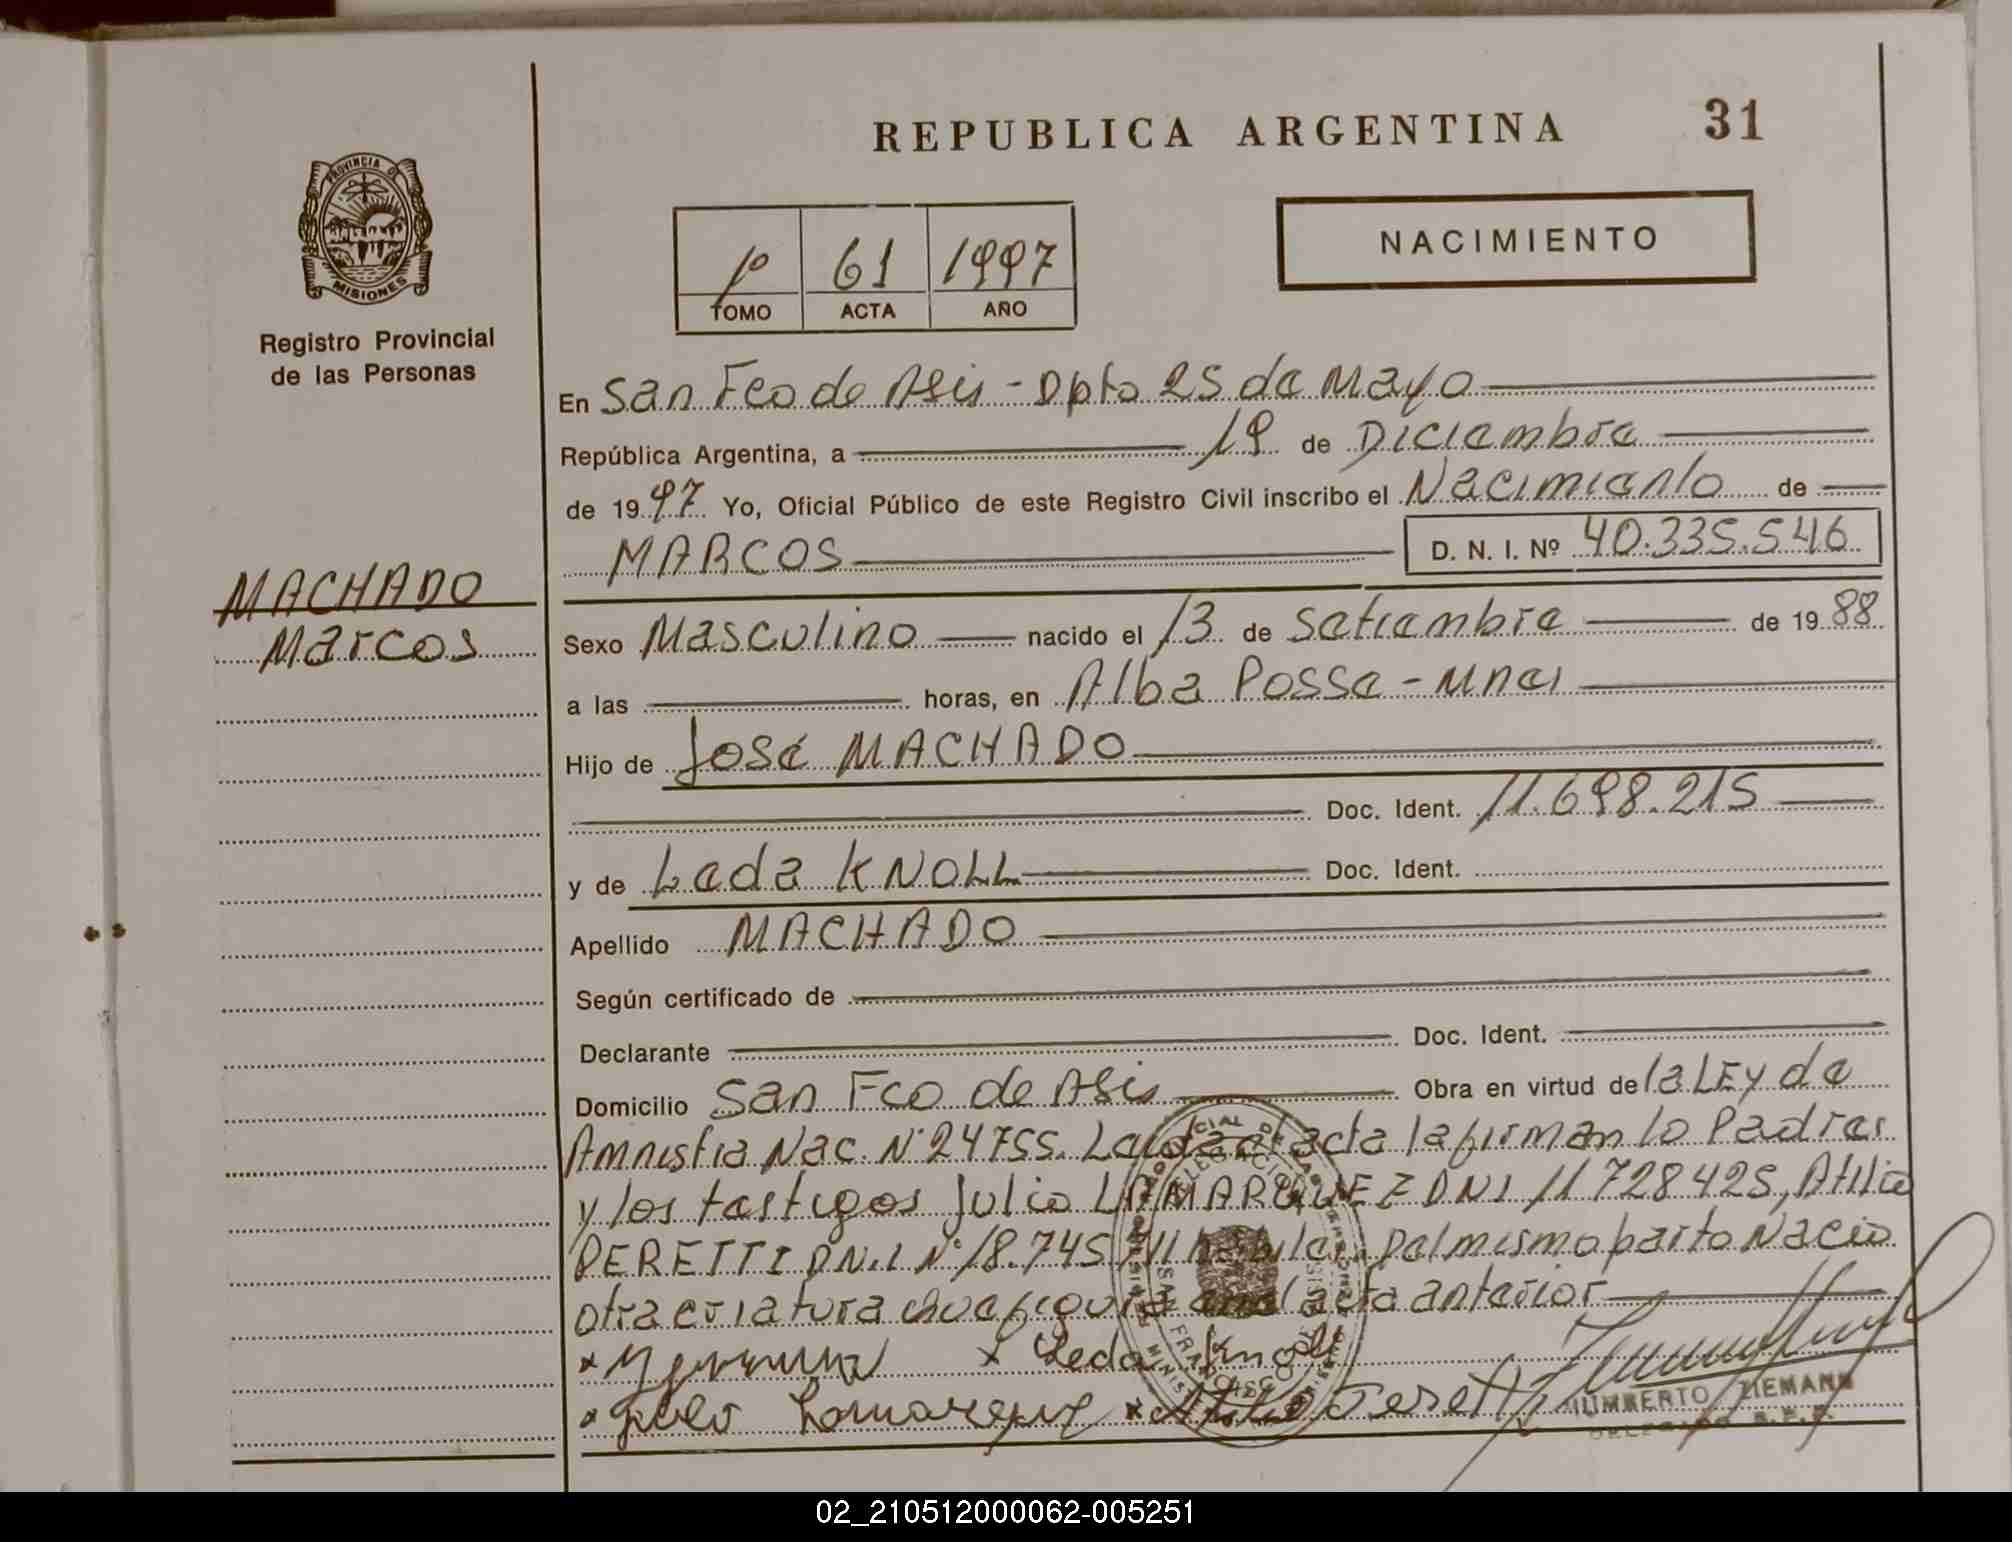 REPUBLICA ARGENTINA 31
PROVINCIA DE
MISIONES
Registro Provincial
de las Personas
1º 61 1997
TOMO ACTA AÑO
NACIMIENTO
En San Fco de Asis - Dpto 25 de Mayo
República Argentina, a 19 de Diciembre
de 1997 Yo, Oficial Público de este Registro Civil inscribo el Nacimiento de
MARCOS D. N. I. Nº 40.335.546
MACHADO
Marcos
Sexo Masculino nacido el 13 de Setiembre de 1988
a las horas, en Alba Posse - Mnes
Hijo de José MACHADO
Doc. Ident. 11.698.215
y de Leda KNOLL Doc. Ident.
Apellido MACHADO
Según certificado de
Declarante Doc. Ident.
Domicilio San Fco de Asis Obra en virtud de la LEY de
Amnistia Nac. Nº 24755. Leida el acta la firman lo Padres
y los testigos Julio LAMARQUEZ DNI 11728425, Atilio
PERETTI D.N.I Nº 18.745 habiles. Del mismo parto Nacio
otra criatura que figura en el acta anterior
x x Leda Knoll
x Julio Lamarquez x Atilio Peretti
HUMBERTO ZIEMANN
DELEGADO R.P.P.
02_210512000062-005251